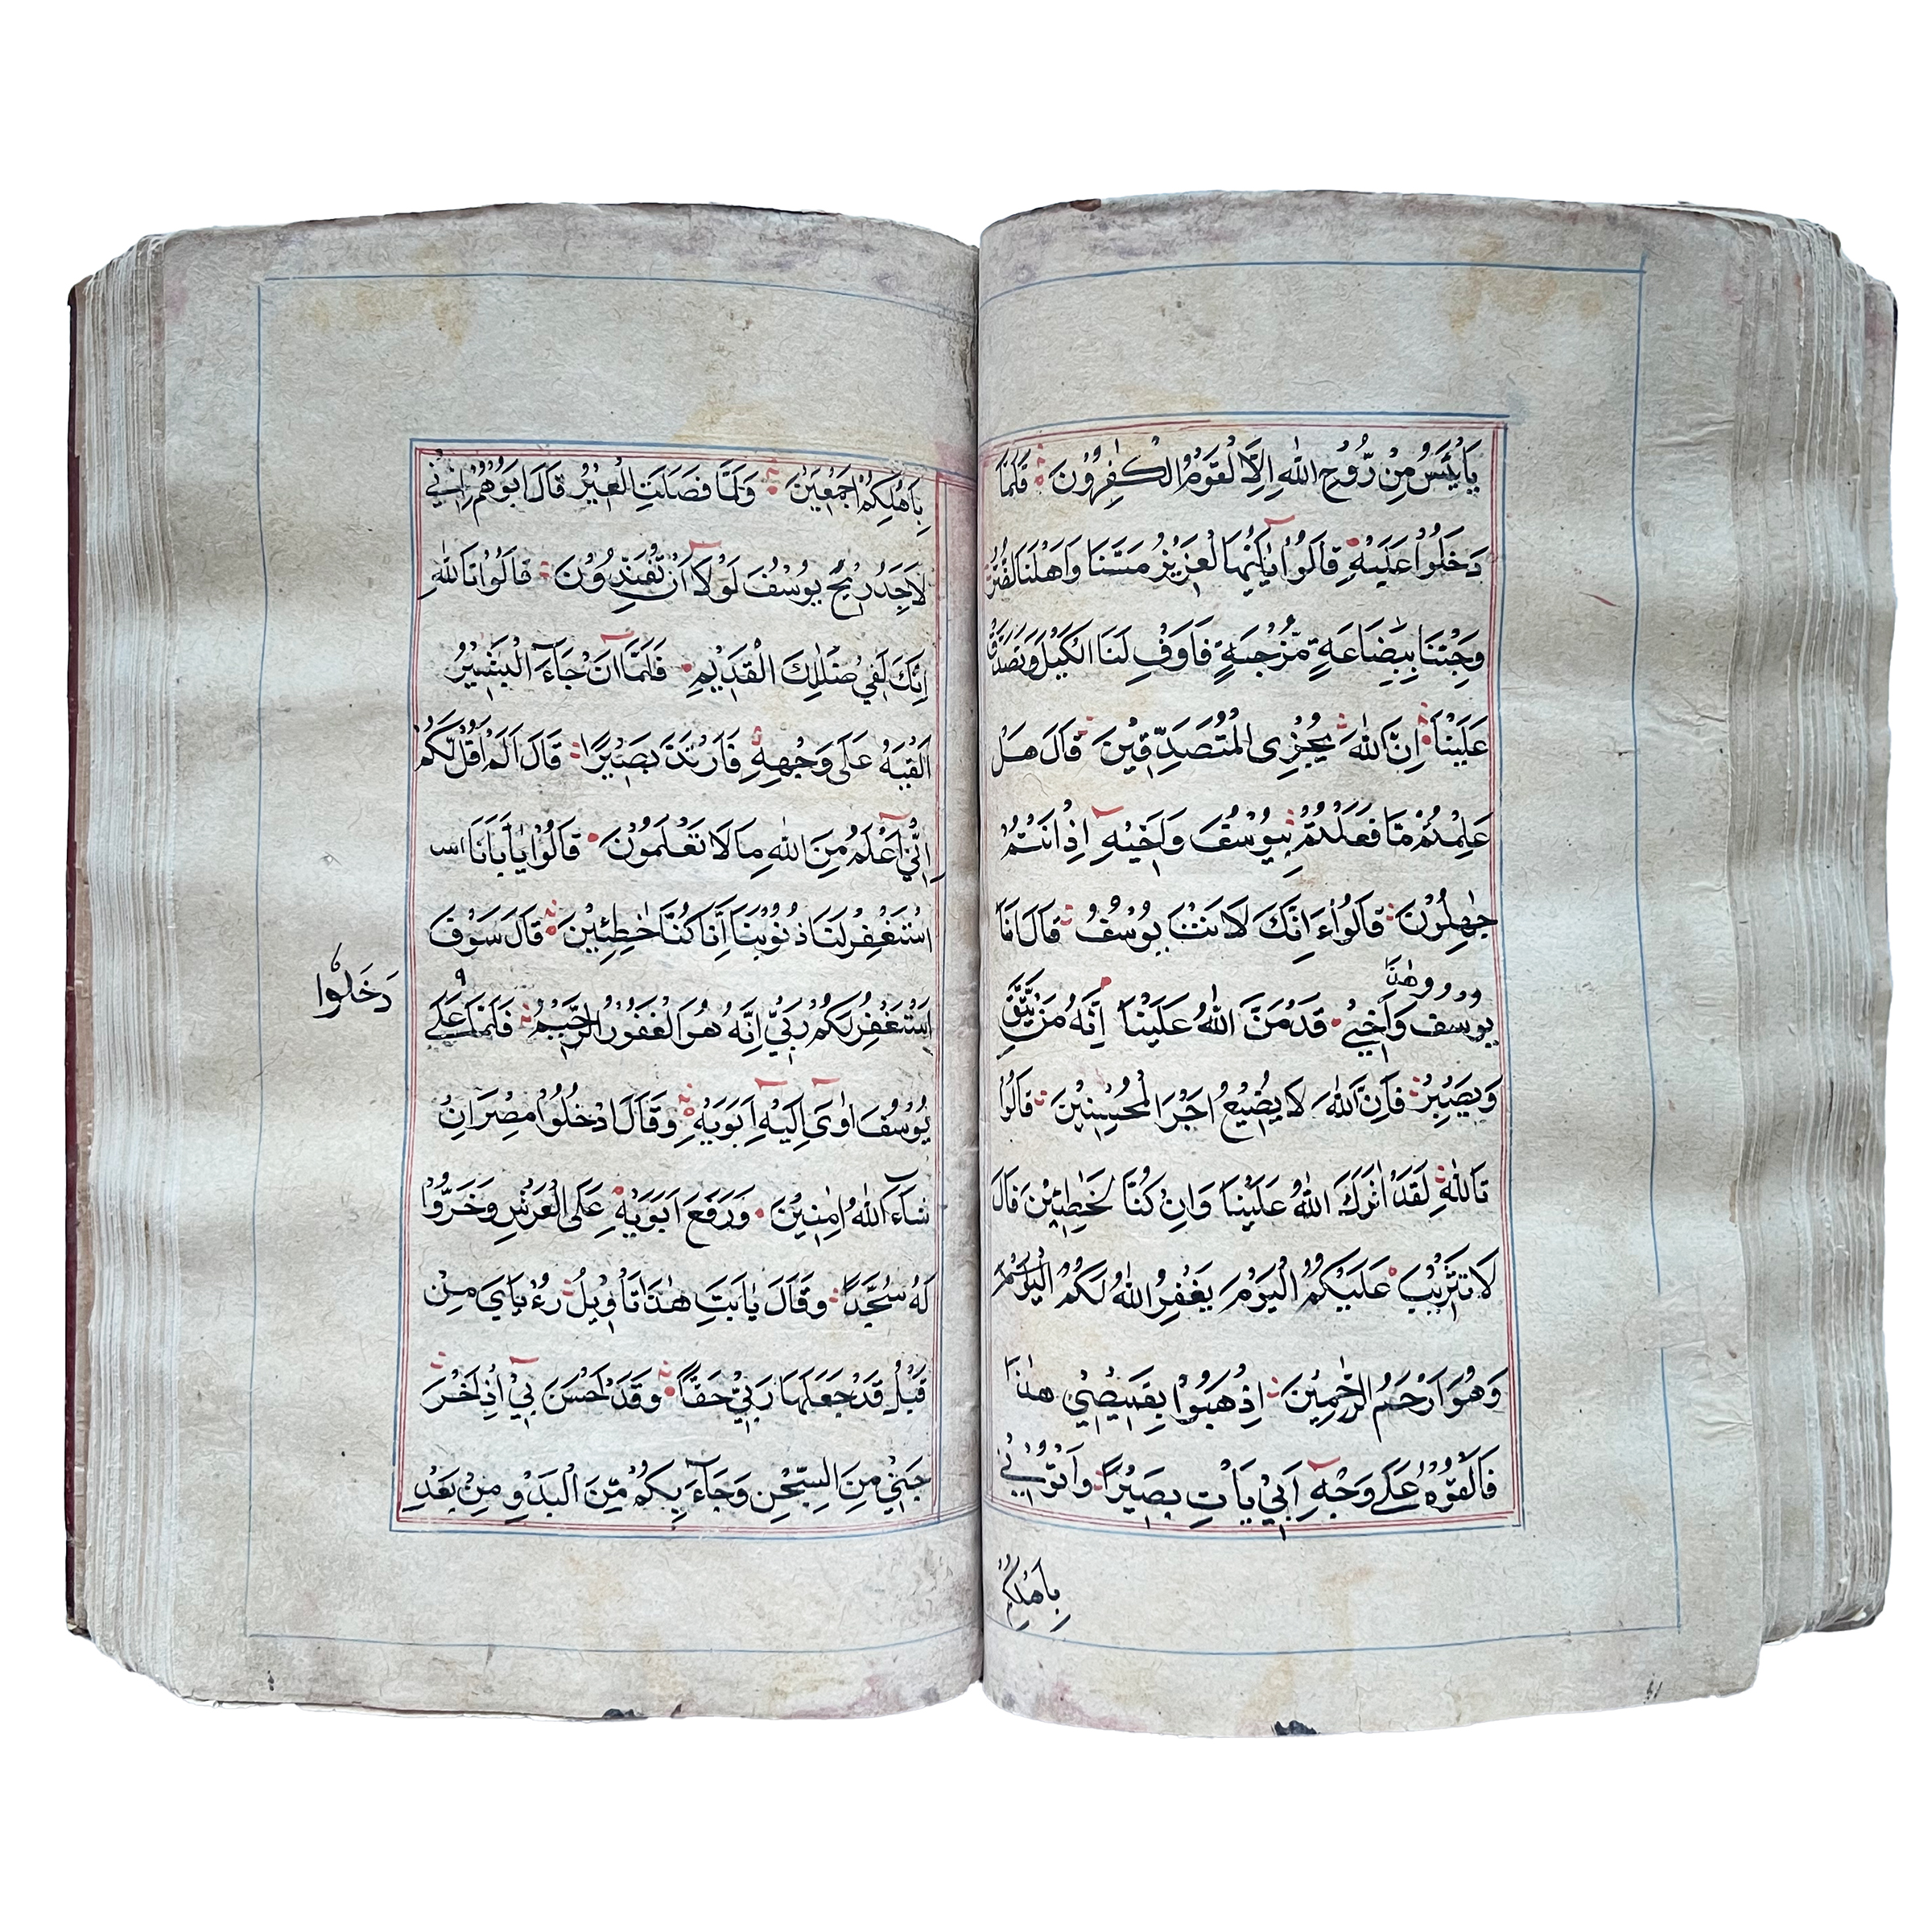 يَايْئَسُ مِنْ رَّوْحِ اللّٰهِ اِلَّا الْقَوْمُ الْكٰفِرُوْنَ فَلَمَّا
دَخَلُوْا عَلَيْهِ قَالُوْا يٰاَيُّهَا الْعَزِيْزُ مَسَّنَا وَاَهْلَنَا الضُّرُّ
وَجِئْنَا بِبِضَاعَةٍ مُّزْجٰىةٍ فَاَوْفِ لَنَا الْكَيْلَ وَتَصَدَّقْ
عَلَيْنَا اِنَّ اللّٰهَ يَجْزِى الْمُتَصَدِّقِيْنَ قَالَ هَلْ
عَلِمْتُمْ مَّا فَعَلْتُمْ بِيُوْسُفَ وَاَخِيْهِ اِذْ اَنْتُمْ
جٰهِلُوْنَ قَالُوْا ءَاِنَّكَ لَاَنْتَ يُوْسُفُ قَالَ اَنَا
يوسف وَهٰذَا اَخِيْ قَدْ مَنَّ اللّٰهُ عَلَيْنَا اِنَّهُ مَنْ يَّتَّقِ
وَيَصْبِرْ فَاِنَّ اللّٰهَ لَا يُضِيْعُ اَجْرَ الْمُحْسِنِيْنَ قَالُوْا
تَاللّٰهِ لَقَدْ اٰثَرَكَ اللّٰهُ عَلَيْنَا وَاِنْ كُنَّا لَخٰطِئِيْنَ قَالَ
لَا تَثْرِيْبَ عَلَيْكُمُ الْيَوْمَ يَغْفِرُ اللّٰهُ لَكُمُ الْيَوْمَ
وَهُوَ اَرْحَمُ الرّٰحِمِيْنَ اِذْهَبُوْا بِقَمِيْصِيْ هٰذَا
فَاَلْقُوْهُ عَلٰى وَجْهِ اَبِيْ يَاْتِ بَصِيْرًا وَاْتُوْنِيْ
بِاَهْلِكُمْ
بِاَهْلِكُمْ اَجْمَعِيْنَ وَلَمَّا فَصَلَتِ الْعِيْرُ قَالَ اَبُوْهُمْ اِنِّيْ
لَاَجِدُ رِيْحَ يُوْسُفَ لَوْلَا اَنْ تُفَنِّدُوْنَ قَالُوْا تَاللّٰهِ
اِنَّكَ لَفِيْ ضَلٰلِكَ الْقَدِيْمِ فَلَمَّا اَنْ جَاءَ الْبَشِيْرُ
اَلْقٰىهُ عَلٰى وَجْهِهِ فَارْتَدَّ بَصِيْرًا قَالَ اَلَمْ اَقُلْ لَّكُمْ
اِنِّيْ اَعْلَمُ مِنَ اللّٰهِ مَا لَا تَعْلَمُوْنَ قَالُوْا يٰاَبَانَا اس
اسْتَغْفِرْ لَنَا ذُنُوْبَنَا اِنَّا كُنَّا خٰطِئِيْنَ قَالَ سَوْفَ
اَسْتَغْفِرُ لَكُمْ رَبِّيْ اِنَّهُ هُوَ الْغَفُوْرُ الرَّحِيْمُ فَلَمَّا عَلٰى
دَخَلُوْا
يُوْسُفَ اٰوٰى اِلَيْهِ اَبَوَيْهِ وَقَالَ ادْخُلُوْا مِصْرَ اِنْ
شَاءَ اللّٰهُ اٰمِنِيْنَ وَرَفَعَ اَبَوَيْهِ عَلَى الْعَرْشِ وَخَرُّوْا
لَهُ سُجَّدًا وَقَالَ يٰاَبَتِ هٰذَا تَاْوِيْلُ رُءْيَايَ مِنْ
قَبْلُ قَدْ جَعَلَهَا رَبِّيْ حَقًّا وَقَدْ اَحْسَنَ بِيْ اِذْ اَخْرَ
جَنِيْ مِنَ السِّجْنِ وَجَاءَ بِكُمْ مِّنَ الْبَدْوِ مِنْ بَعْدِ